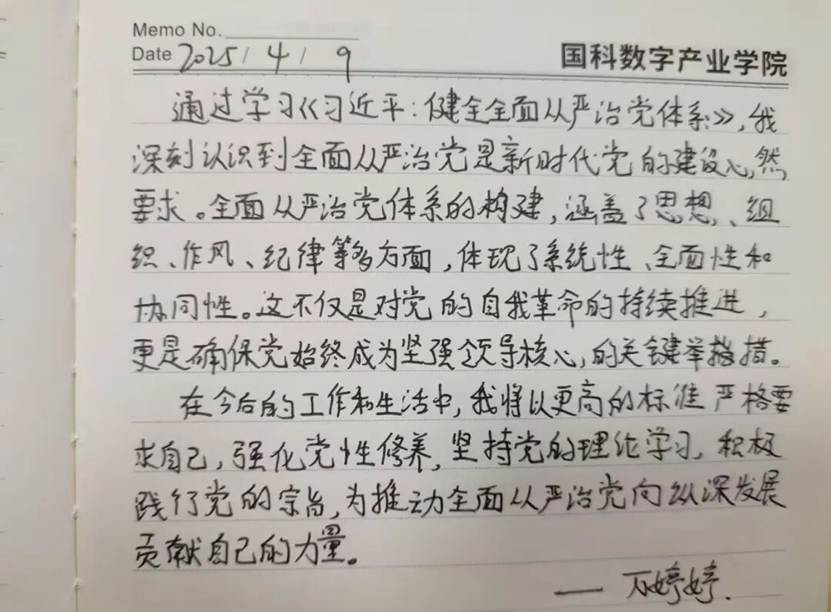 Memo No.
Date 2025/4/9
国科数字产业学院
通过学习《习近平:健全全面从严治党体系》,我
深刻认识到全面从严治党是新时代党的建设必然
要求。全面从严治党体系的构建,涵盖了思想、组
织、作风、纪律等多方面,体现了系统性、全面性和
协同性。这不仅是对党的自我革命的持续推进,
更是确保党始终成为坚强领导核心的关键举措。
在今后的工作和生活中,我将以更高的标准严格要
求自己,强化党性修养,坚持党的理论学习,积极
践行党的宗旨,为推动全面从严治党向纵深发展
贡献自己的力量。
——婷婷.